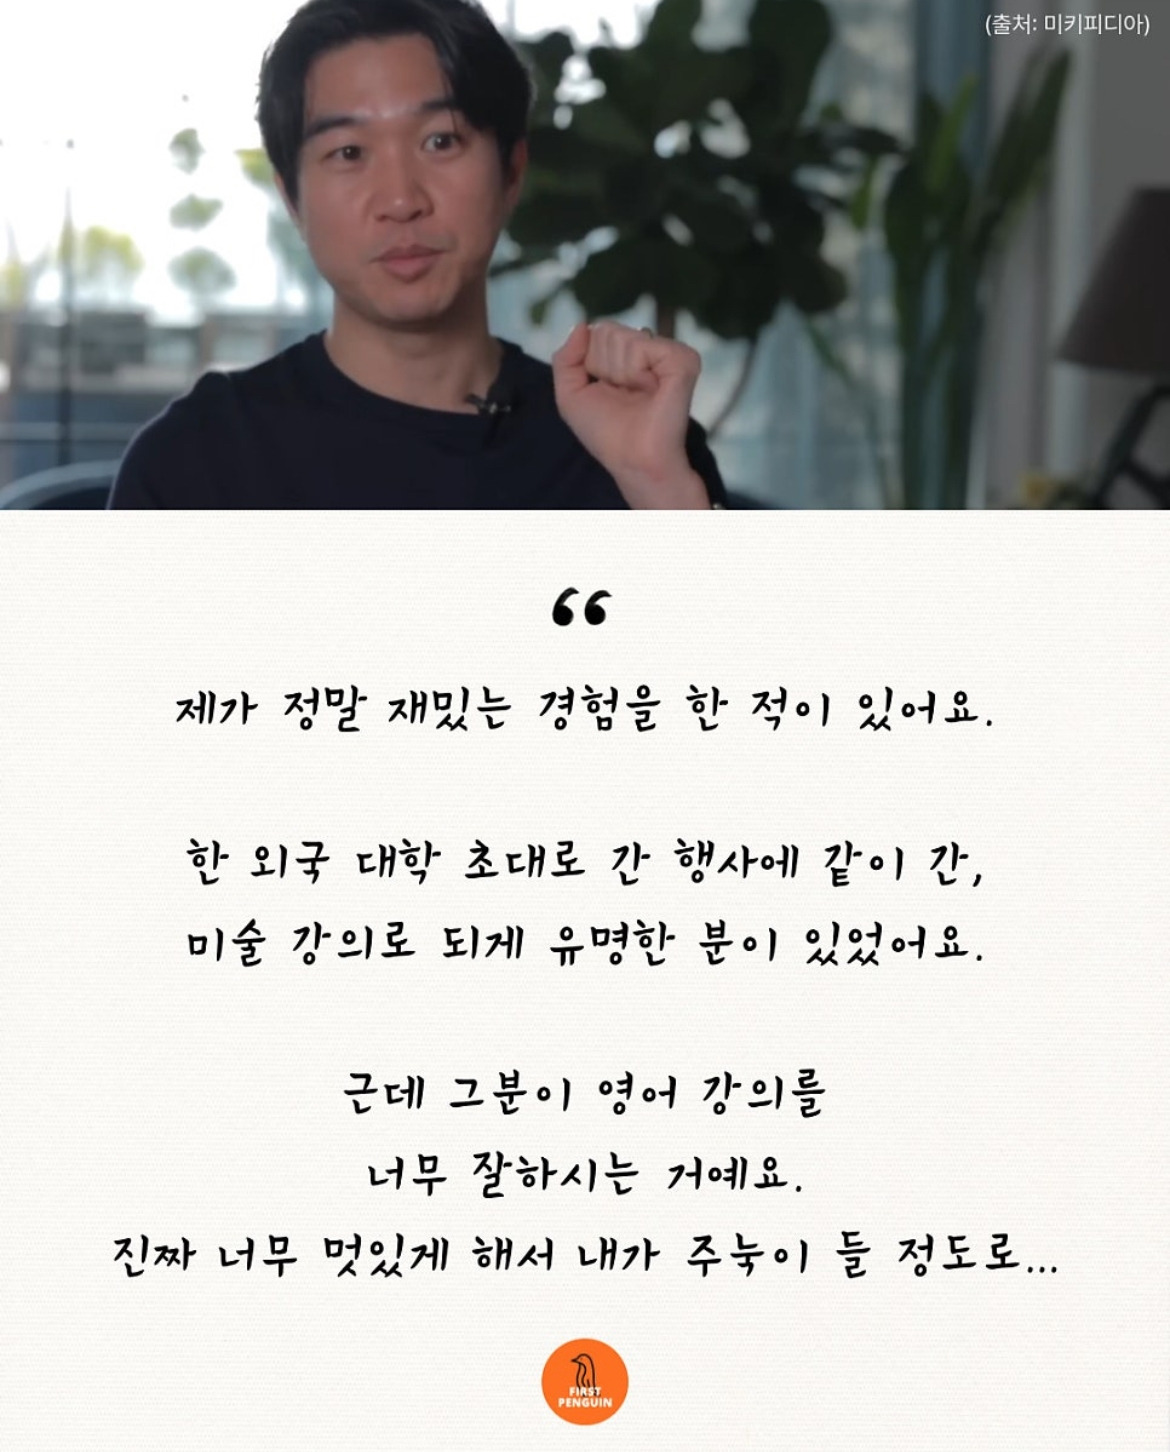 (출처: 미키피디아)
“
제가 정말 재밌는 경험을 한 적이 있어요.
한 외국 대학 초대로 간 행사에 같이 간,
미술 강의로 되게 유명한 분이 있었어요.
근데 그분이 영어 강의를
너무 잘하시는 거예요.
진짜 너무 멋있게 해서 내가 주눅이 들 정도로...
FIRST
PENGUIN